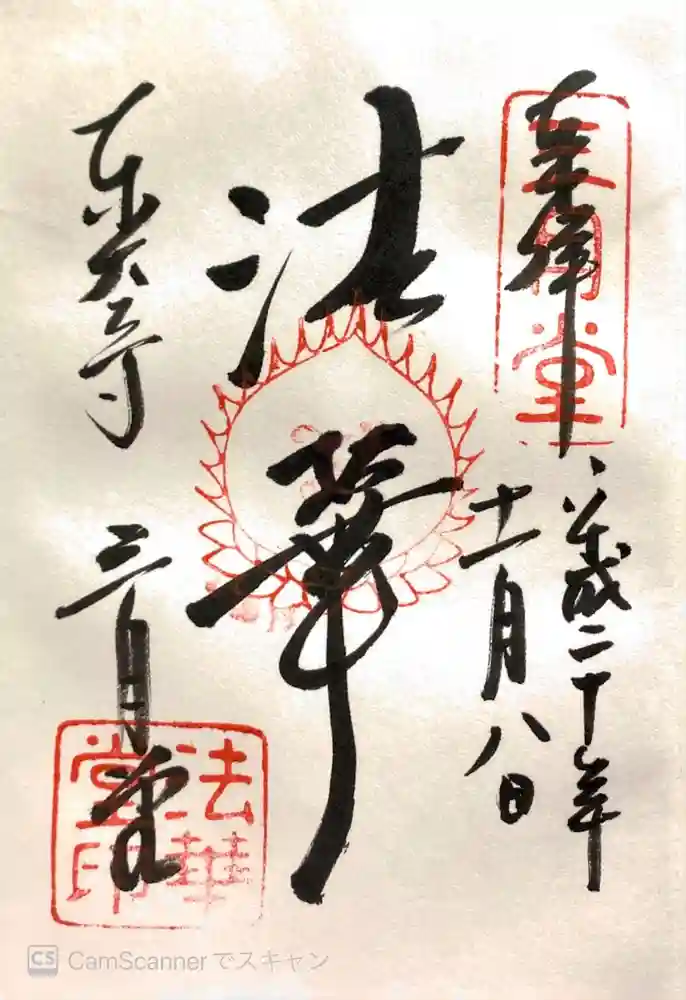 奉拝
三月堂
平成二十年
十一月八日
法華
東大寺
三月堂
法華
堂印
CS CamScanner でスキャン